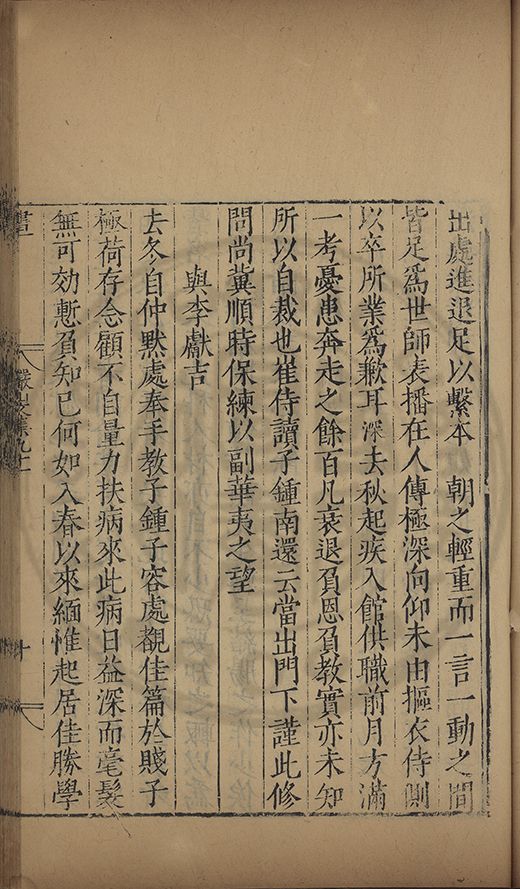 出處進退足以繫本　朝之輕重而一言一動之間
皆足爲世師表播在人傳極深向仰未由摳衣侍側
以卒所業爲歉耳深去秋起疾入館供職前月方滿
一考憂患奔走之餘百凡衰退負恩負教實亦未知
所以自裁也崔侍讀子鍾南還云當出門下謹此修
問尚冀順時保練以副華夷之望
與李獻吉
去冬自仲默處奉手教子鍾子容處覩佳篇於賤子
極荷存念顧不自量力扶病來此病日益深而毫髮
無可効慙負知已何如入春以來緬惟起居佳勝學
書
儼山集九十一
十